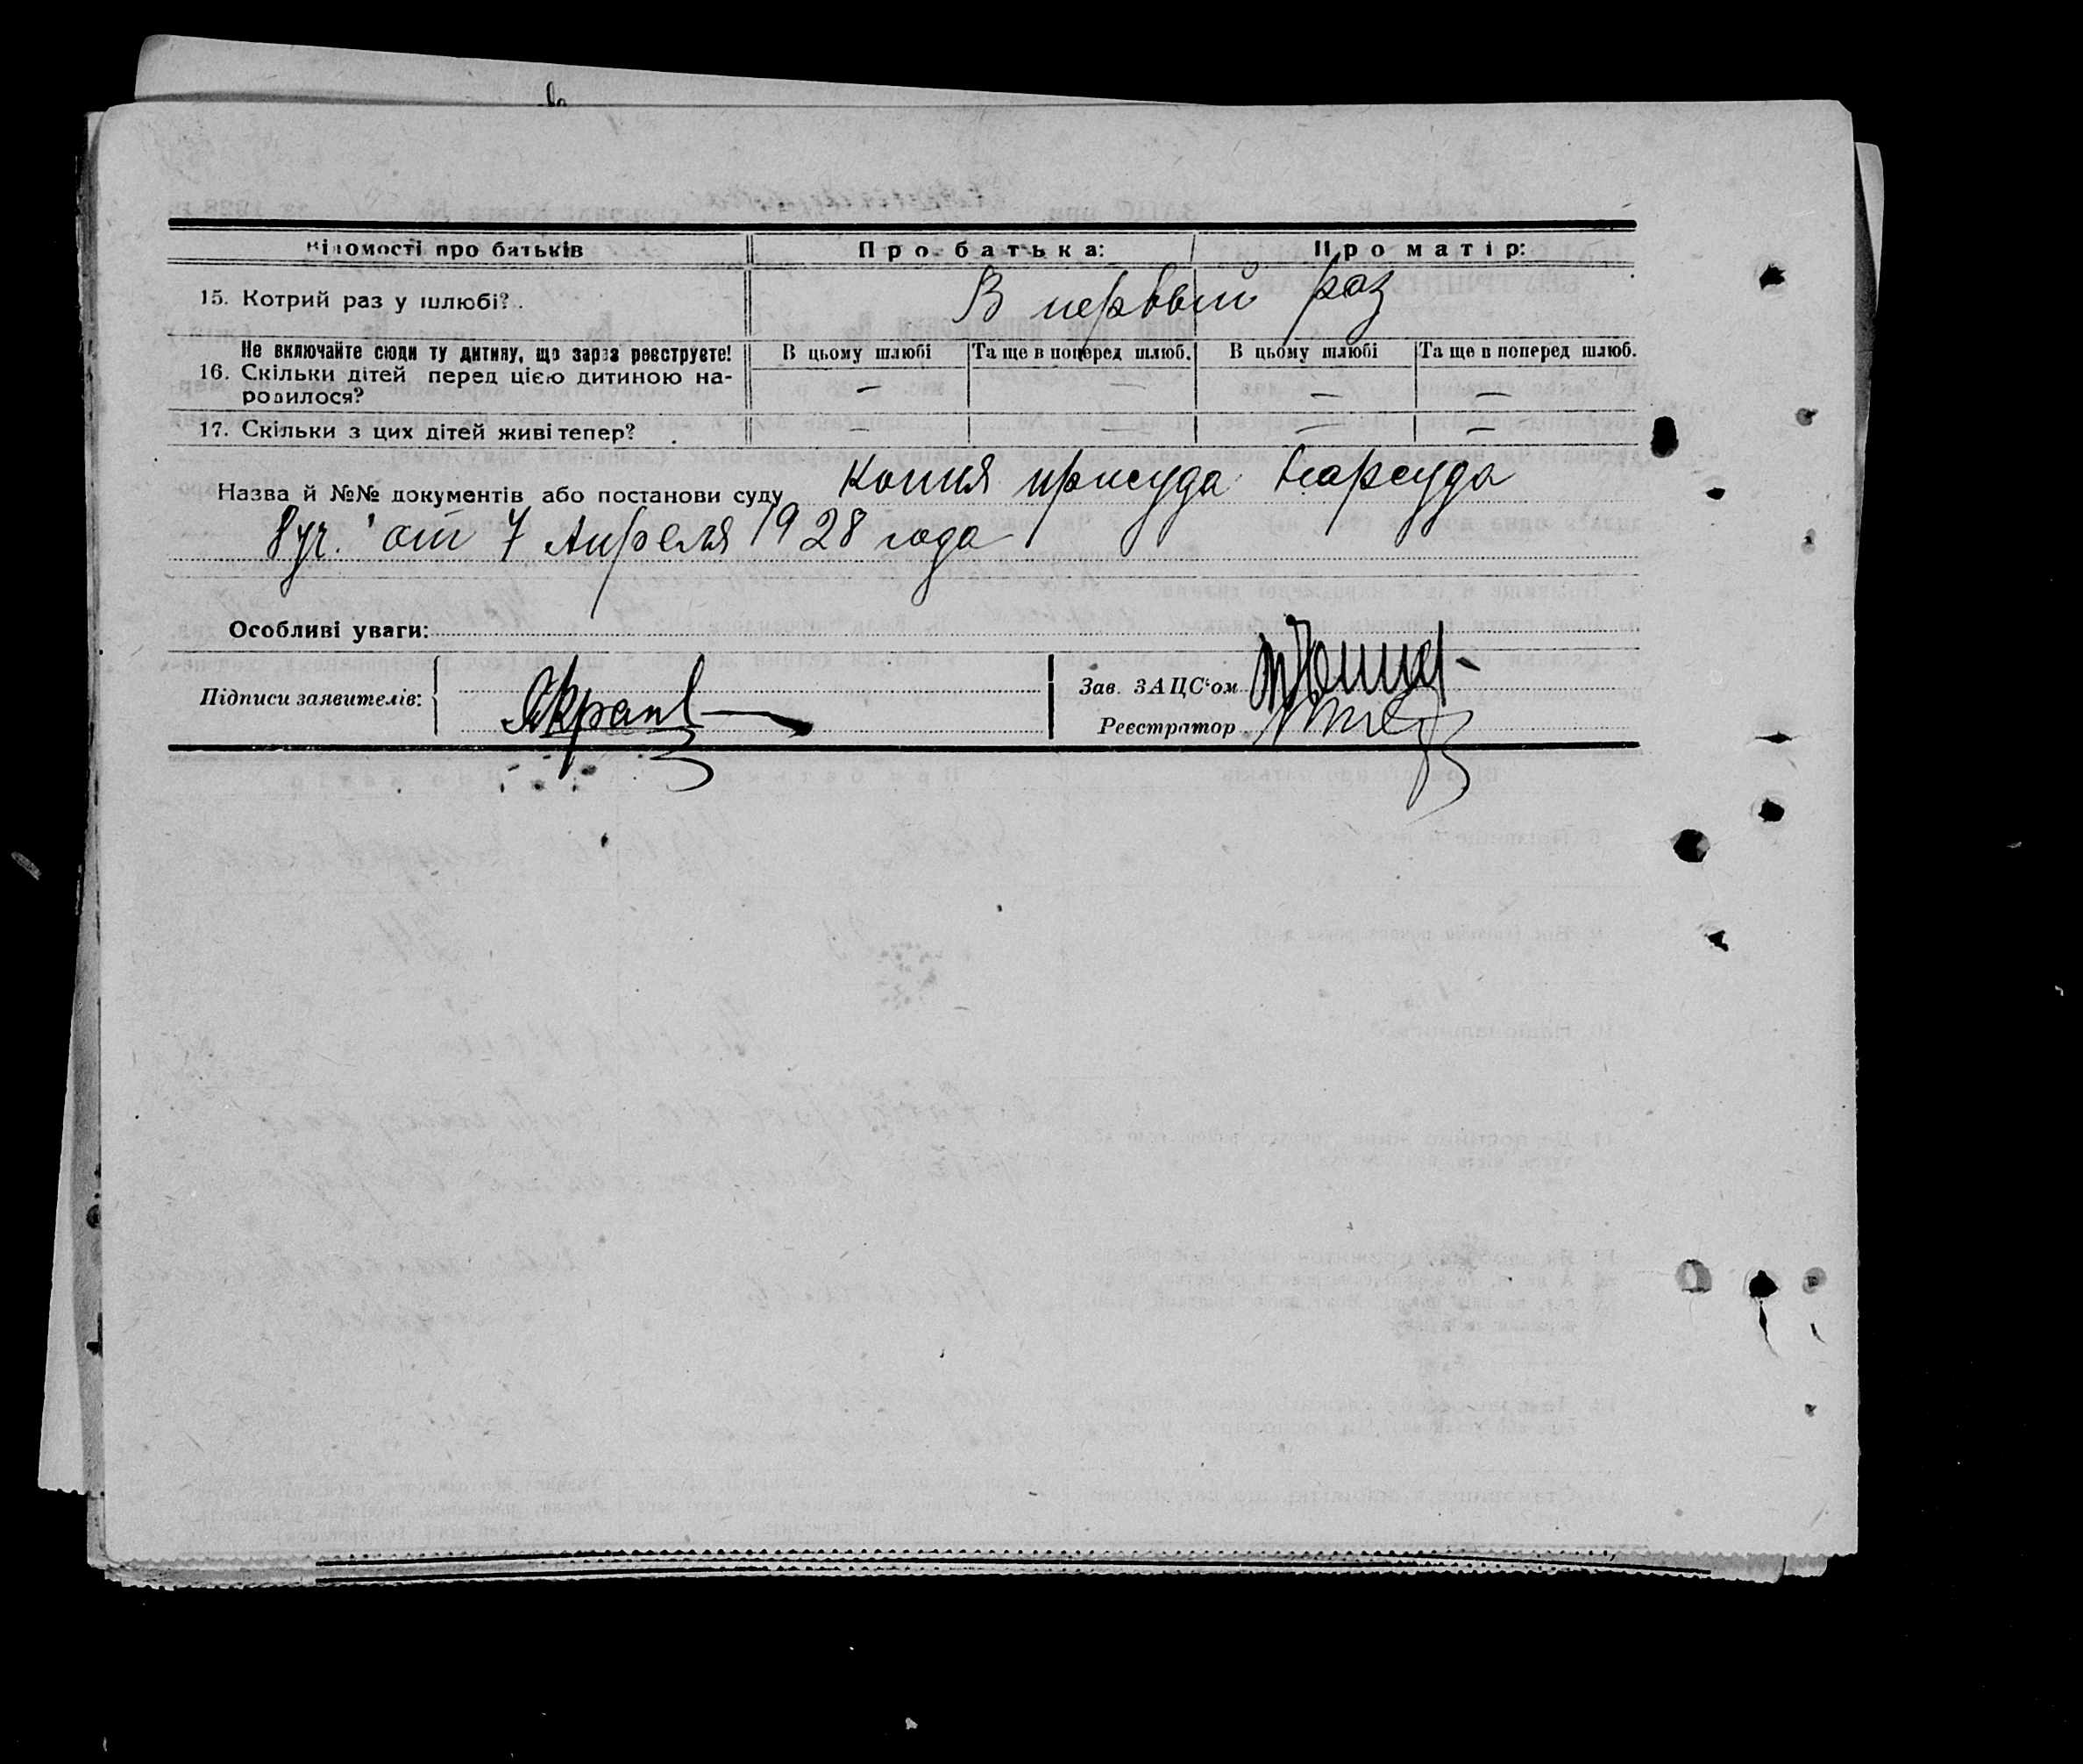 Відомості про батьків
Про батька:
Про матір:
15. Котрий раз у шлюбі?
В первый раз
Не включайте сюди ту дитину, що зараз реєструєте!
16. Скільки дітей перед цією дитиною на-
родилося?
В цьому шлюбі
Та ще в поперед шлюб.
В цьому шлюбі
Та ще в поперед шлюб.
— — — —
17. Скільки з цих дітей живі тепер?
— — — —
Назва й №№ документів або постанови суду копия присуда Нарсуда
8 уч. от 7 Апреля 1928 года
Особливі уваги:
Підписи заявителів:
Зав. ЗАЦС'ом
Реєстратор